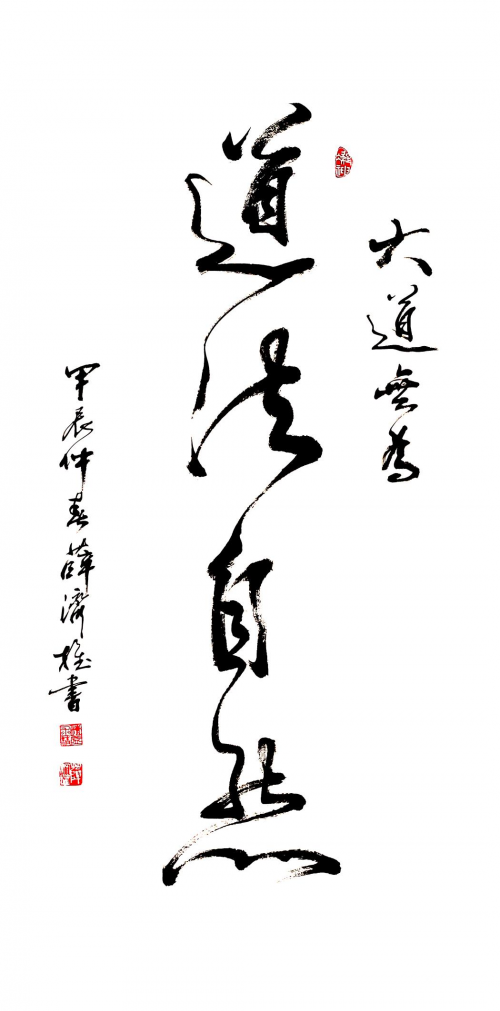 大道無為
道法自然
甲辰仲春薛濟雄書